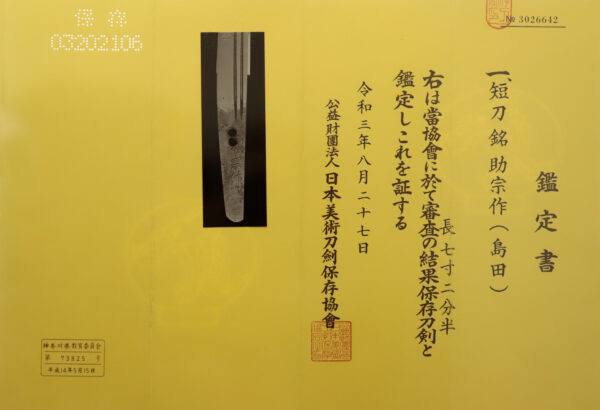 № 3026642
鑑定書
一、短刀 銘 助宗作(島田)
長 七寸二分半
右は當協會に於て審査の結果保存刀剣と
鑑定しこれを証する
令和三年八月二十七日
公益財團法人 日本美術刀劍保存協會
保存
03202106
神奈川県教育委員会
第 73825 号
平成14年5月15日